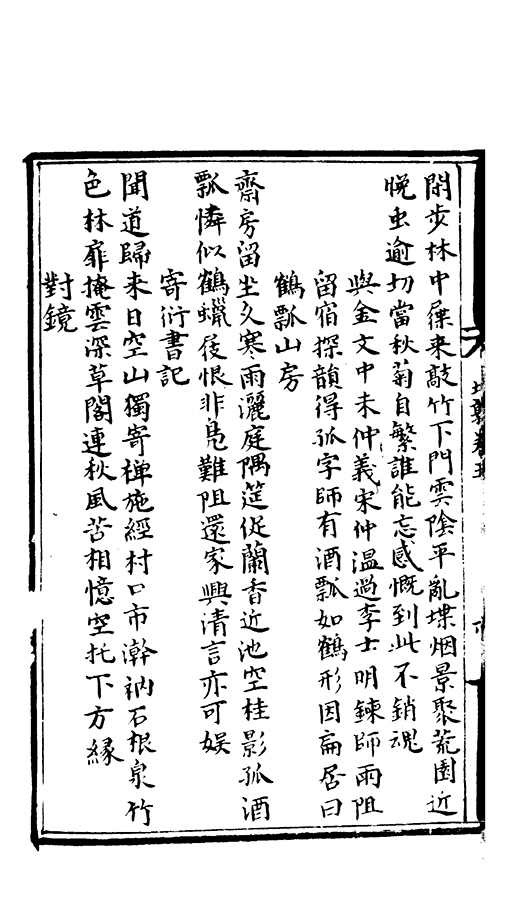 閑步林中屧來敲竹下門雲陰平亂堞烟景聚荒園近
晚虫逾切當秋菊自繁誰能忘感慨到此不銷魂
與金文中未仲義宋仲溫過李士明鍊師雨阻
留宿探韻得孤字師有酒瓢如鶴形因扁居曰
鶴瓢山房
齋房留坐久寒雨灑庭隅筵促蘭香近池空桂影孤酒
瓢憐似鶴蠟屐恨非鳧難阻還家興清言亦可娱
寄衍書記
聞道歸來日空山獨寄禅施經村口市澣衲石根泉竹
色林扉掩雲深草閣連秋風苦相憶空托下方緣
對鏡